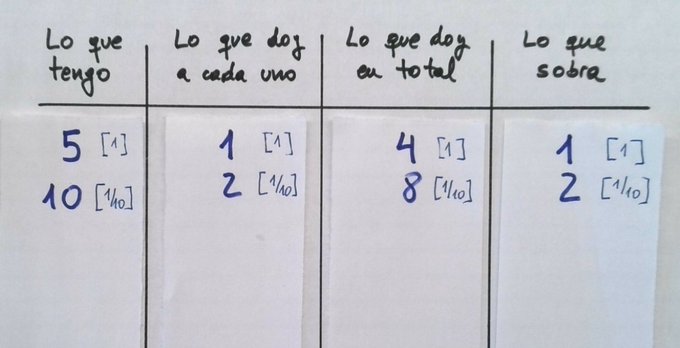 Lo que tengo | Lo que doy a cada uno | Lo que doy en total | Lo que sobra
5 [1] | 1 [1] | 4 [1] | 1 [1]
10 [1/10] | 2 [1/10] | 8 [1/10] | 2 [1/10]